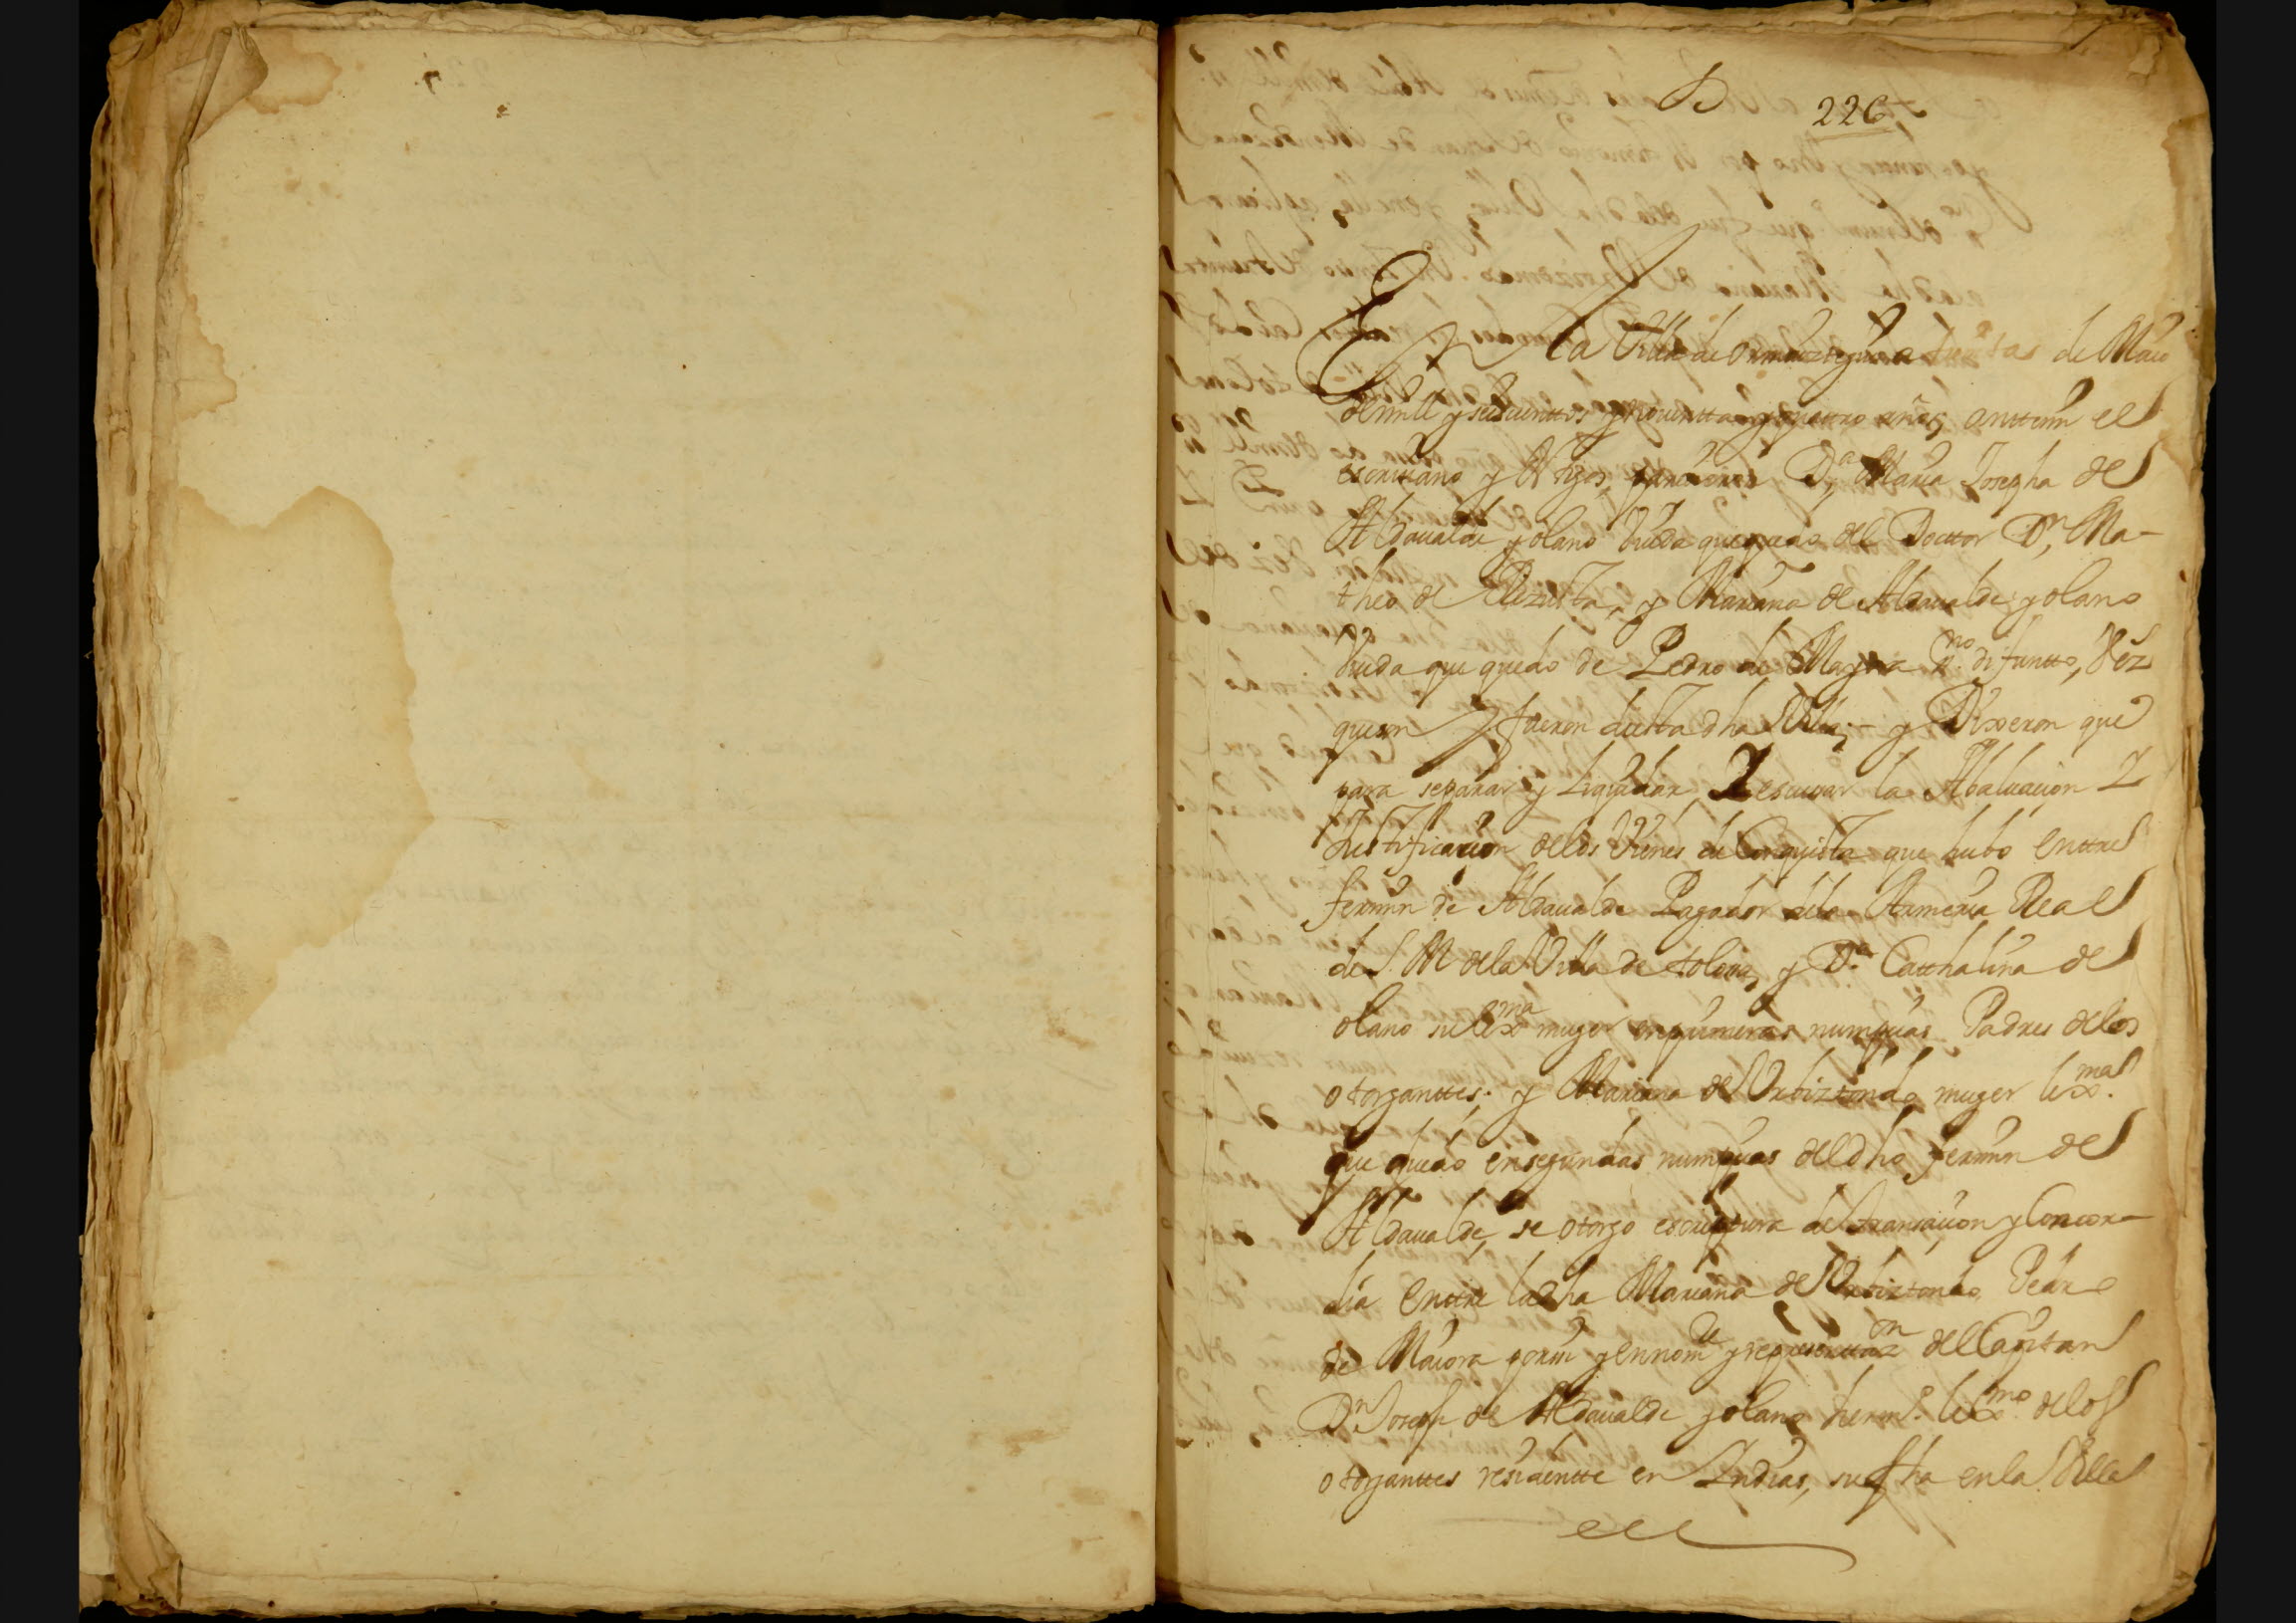 226
En la Villa de ormaiztegui a treinta de Maio
de mill y seiscienttos y nouentta y quattro años, antte mi el
escriuano y ttgos, parecieron D.ª Maria Josepha de
Aldaualde y olano Viuda que quedo del Docttor D.n Ma-
theo de Elizalde, y Mariana de Aldaualde y olano
Viuda que quedo de Pedro de Mayora difuntto, vez
que son y fueron de esta dha Villa; y Dixeron que
para separar y Liquidar, Y escusar la Abaluacion Y
Justificacion de los Vienes de Conquista que hubo enttre
fermin de Aldaualde Pagador de la Armeria Real
de S. M de la Villa de tolosa, y D.ª Catthalina de
olano su lexma muger en primeras numpcias Padres de los
otorganttes; y Mariana de Vrbiztondo muger lexma.
que quedo en segundas numpcias del dho fermin de
Aldaualde, se otorgo escriptura de transacion y Concor-
dia enttre la dha Mariana de Vrbiztondo, Pedro
de Maiora por si y en nom.e y representtaz.on del Capitan
D.n Joseph de Aldaualde y olano herm.o lexmo. de los
otorganttes residentte en Indias, su fha en la Villa